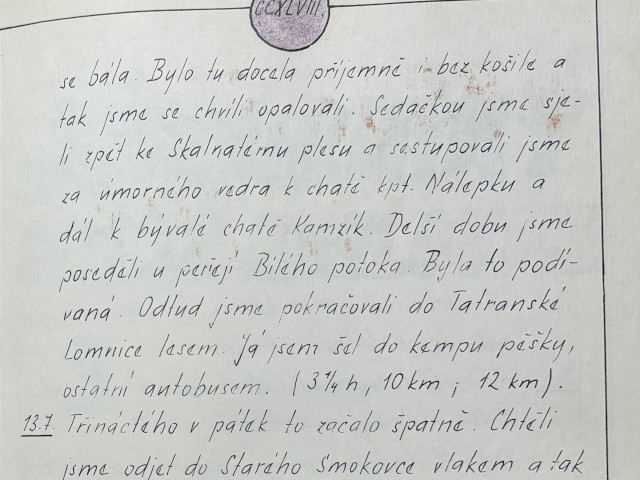 CCXLVIII.
se bála. Bylo tu docela příjemně i bez košile a
tak jsme se chvíli opalovali. Sedačkou jsme sje-
li zpět ke Skalnatému plesu a sestupovali jsme
za úmorného vedra k chatě kpt. Nálepku a
dál k bývalé chatě Kamzík. Delší dobu jsme
poseděli u peřejí Bílého potoka. Byla to podí-
vaná. Odtud jsme pokračovali do Tatranské
Lomnice lesem. Já jsem šel do kempu pěšky,
ostatní autobusem. (3 1/4 h, 10 km ; 12 km).
13.7. Třináctého v pátek to začalo špatně. Chtěli
jsme odjet do Starého Smokovce vlakem a tak